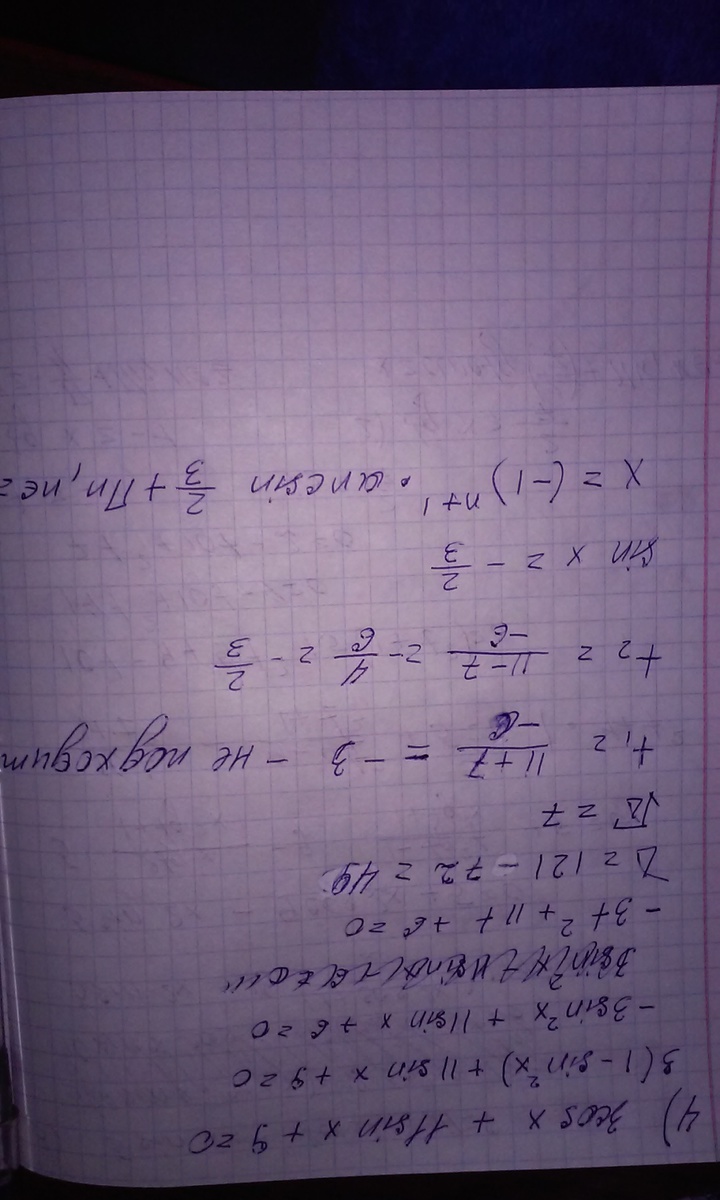 4) 3cos x + 11sin x + 9 = 0
3(1 - sin²x) + 11sin x + 9 = 0
-3sin²x + 11sin x + 6 = 0
-3t² + 11t + 6 = 0
Δ = 121 - 72 = 49
√Δ = 7
t₁ = 11+7/-6 = -3 - не подходит
t₂ = 11-7/-6 = -4/6 = -2/3
sin x = -2/3
x = (-1)ⁿ⁺¹ · arcsin 2/3 + Πn, n∈